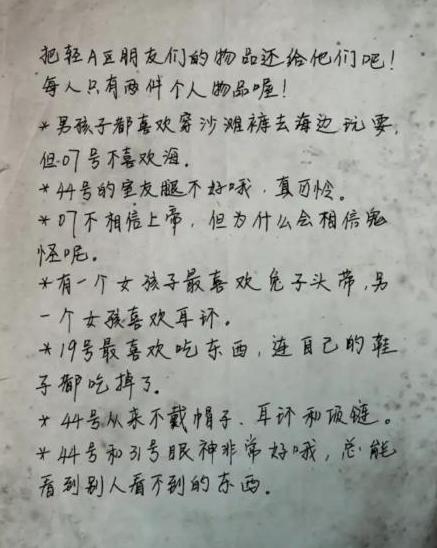 把轻A区朋友们的物品还给他们吧!
每人只有两件个人物品喔!
*男孩子都喜欢穿沙滩裤去海边玩耍,
但07号不喜欢海.
*44号的室友腿不好哦,真可怜。
*07不相信上帝,但为什么会相信鬼
怪呢。
*有一个女孩子最喜欢兔子头带,另
一个女孩喜欢耳环。
*19号最喜欢吃东西,连自己的鞋
子都吃掉了。
*44号从来不戴帽子、耳环和项链。
*44号和31号眼神非常好哦,总能
看到别人看不到的东西。